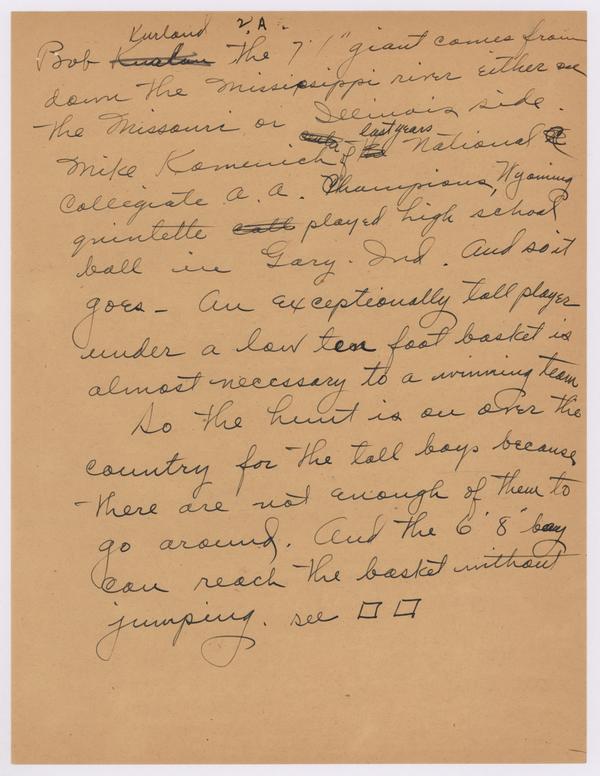 2A.
Bob Kurland The 7'1" giant comes from
down the Mississippi river either on
the Missouri or Illinois side.
Mike Komenich of last years National
Collegiate A. A. Champions, Wyoming
quintette played high school
ball in Gary. Ind. And so it
goes - An exceptionally tall player
under a low ten foot basket is
almost necessary to a winning team
So the hunt is on over the
country for the tall boys because
there are not enough of them to
go around. And the 6' 8" boy
can reach the basket without
jumping. see □ □